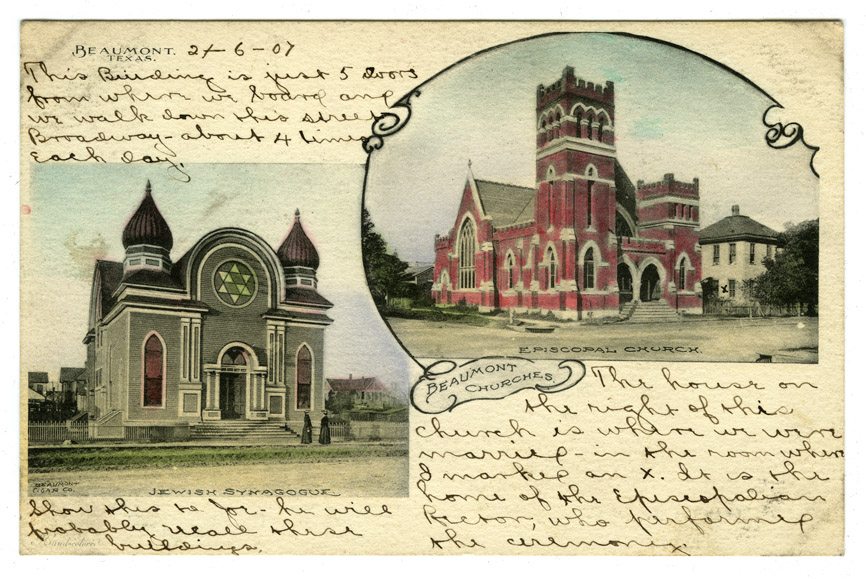 BEAUMONT, 2+-6-07
TEXAS.
This Building is just 5 doors
from where we board and
we walk down this street
Broadway - about 4 times
Each day.
EPISCOPAL CHURCH.
BEAUMONT
CHURCHES.
BEAUMONT
CIGAR CO.
JEWISH SYNAGOGUE.
Show this to Joe - he will
probably recall these
buildings.
Handcolored
The house on
the right of this
church is where we were
married - in the room where
I marked an X. It is the
home of the Episcopalian
Rector, who performed
the ceremony.